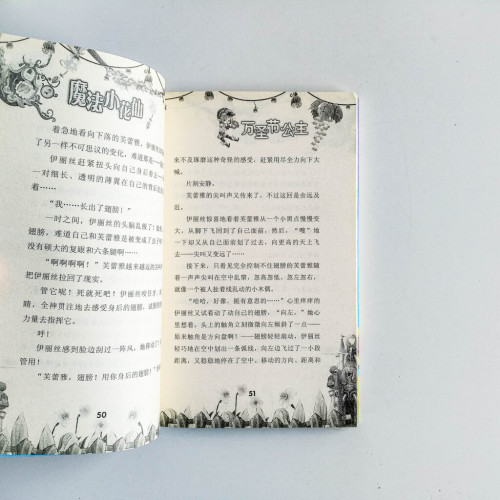 魔法小花仙
着急地看向下落的芙蕾雅，伊丽
了另一样不可思议的变化，难道那是
伊丽丝赶紧扭头向自己身后看去
一对细长、透明的薄翼在自己的背后
着……
“我……长出了翅膀！”
一时之间，伊丽丝的头脑乱极了！
翅膀，难道自己和芙蕾雅是被变成了虫子
没有硕大的复眼和六条腿啊……
“啊啊啊啊！”芙蕾雅越来越远的
把伊丽丝拉回了现实。
管它呢！死就死吧！伊丽丝咬
随，全神贯注地去感受身后的翅膀，
力量去指挥它。
呼！
伊丽丝感到脸边刮过一阵风，她
管用！
“芙蕾雅，翅膀！用你身后的翅膀！”
50
万圣节公主
来不及琢磨这种奇怪的感受，赶紧用尽全力向下大
喊。
片刻安静。
芙蕾雅的尖叫声又传来了，不过这回是由远及
近。
伊丽丝惊喜地看着芙蕾雅从一个小黑点慢慢变
大，从脚下飞回到了自己面前，然后，“嗖”地
一下却又从自己面前划了过去，向更高的天上飞
去——尖叫又变远了。
接下来，只看见完全控制不住翅膀的芙蕾雅随
着一声声尖叫在空中乱窜，忽高忽低，忽左忽右，
就像一个被人扯着线乱动的小木偶。
“哈哈，好像，挺有意思的……”心里痒痒的
伊丽丝又试着动了动自己的翅膀，“向左，”她心
里想着，头上的触角立刻微微向左倾斜了一点——
原来触角是方向盘啊！——翅膀轻轻扇动，伊丽丝
轻巧地在空中划出一条弧线，向左边飞过了一小段
距离，又稳稳地停在了空中。移动的方向、距离和
51